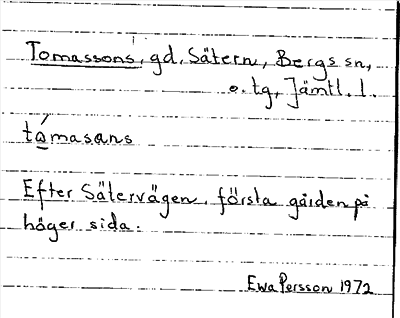 Tomassons, gd, Sätern, Bergs sn,
o. tg, Jämtl. l.
tó̲masans
Efter Sätervägen, första gården på
höger sida.
Ewa Persson 1972